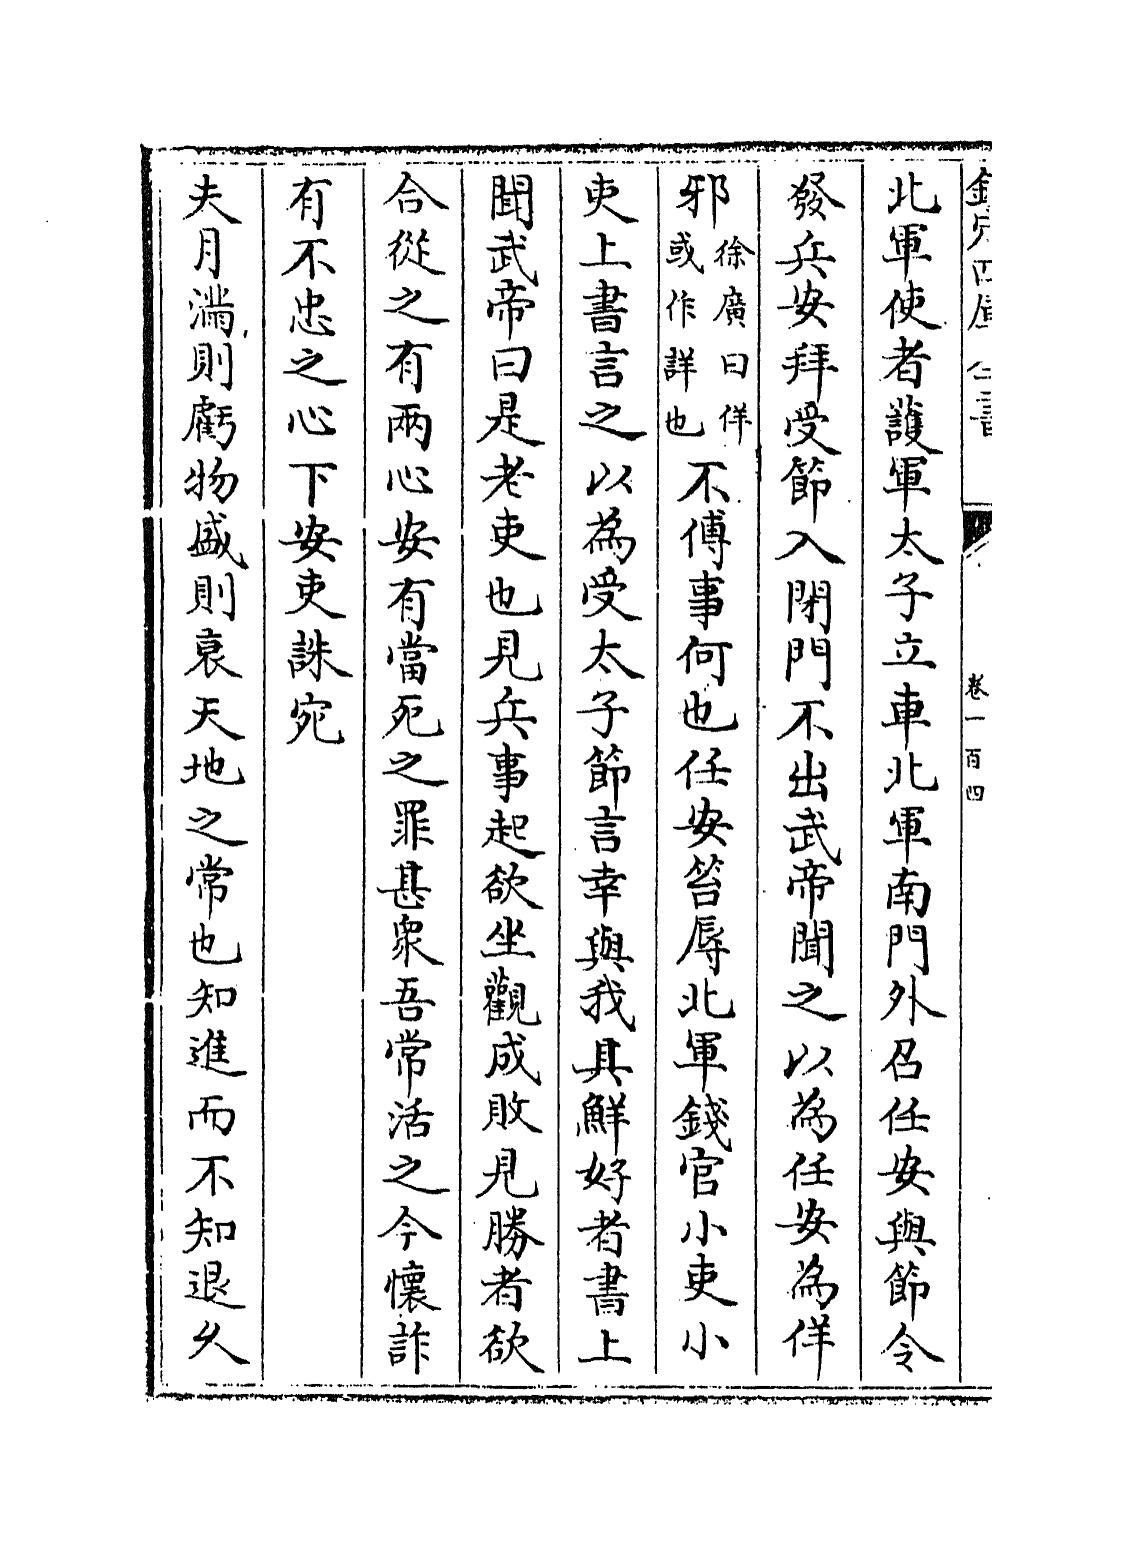 欽定四庫全書
卷一百四
北軍使者護軍太子立車北軍南門外召任安與節令
發兵安拜受節入閉門不出武帝聞之以為任安為佯
邪徐廣曰佯或作詳也不傅事何也任安笞辱北軍錢官小吏小
吏上書言之以為受太子節言幸與我具鮮好者書上
聞武帝曰是老吏也見兵事起欲坐觀成敗見勝者欲
合從之有兩心安有當死之罪甚衆吾常活之今懷詐
有不忠之心下安吏誅宛
夫月滿則虧物盛則衰天地之常也知進而不知退久